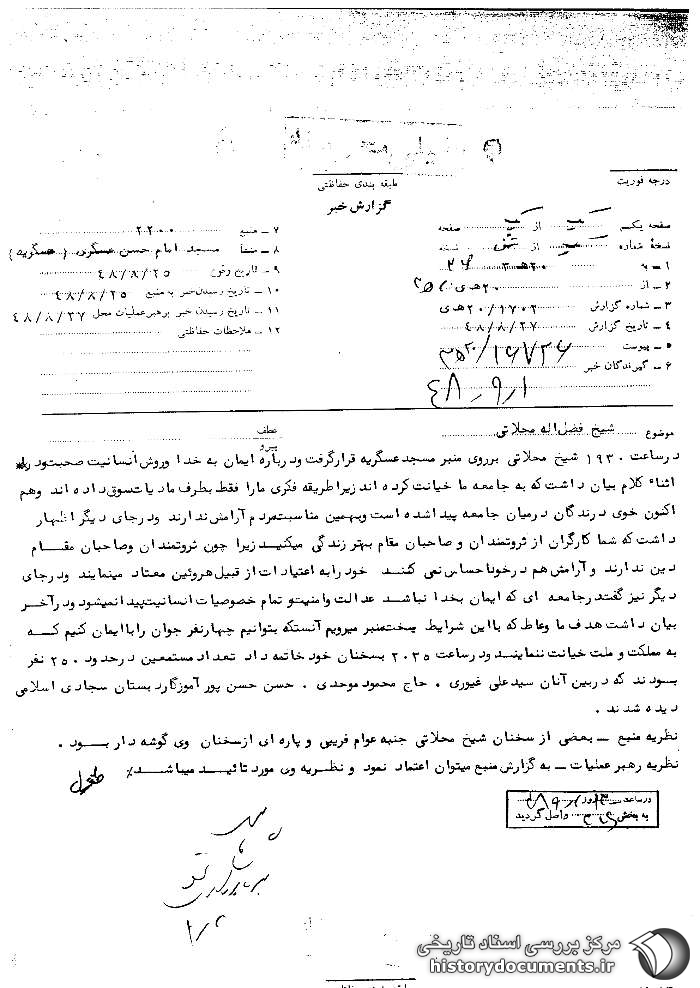 درجه فوریت
طبقه بندی حفاظتی
گزارش خبر
صفحه یکم از صفحه
نسخهٔ شماره از نسخه
۱ – به ۲۰۰ هـ ۳
۲ – از ۲۰ هـ ی
۳ – شماره گزارش ۲۰/۱۷۰۲ هـ ی
۴ – تاریخ گزارش ۴۸/۸/۲۷
۵ – پیوست
۶ – گیرندگان خبر
۷ – منبع ۲۲۰۰
۸ – منشأ مسجد امام حسن عسکری (عسگریه)
۹ – تاریخ وقوع ۴۸/۸/۲۵
۱۰ – تاریخ رسیدن خبر به منبع ۴۸/۸/۲۵
۱۱ – تاریخ رسیدن خبر برهبر عملیات محل ۴۸/۸/۲۷
۱۲ – ملاحظات حفاظتی
موضوع شیخ فضل اله محلاتی
عطف
پیرو
در ساعت ۱۹۳۰ شیخ محلاتی بر روی منبر مسجد عسگریه قرار گرفت و درباره ایمان به خدا و روش انسانیت صحبت و در
اثناء کلام بیان داشت که به جامعه ما خیانت کرده اند زیرا طریقه فکری ما را فقط بطرف مادیات سوق داده اند و هم
اکنون خوی درندگان در میان جامعه پیدا شده است و بهمین مناسبت مردم آرامش ندارند و در جای دیگر اظهار
داشت که شما کارگران از ثروتمندان و صاحبان مقام بهتر زندگی میکنید زیرا چون ثروتمندان و صاحبان مقام
دین ندارند و آرامش هم در خود احساس نمی کنند خود را به اعتیادات از قبیل هروئین معتاد مینمایند و در جای
دیگر نیز گفت در جامعه ای که ایمان بخدا نباشد عدالت و امنیت و تمام خصوصیات انسانیت پیدا نمیشود و در آخر
بیان داشت هدف ما وعاظ که با این شرایط سخت منبر میرویم آنستکه بتوانیم چهار نفر جوان را با ایمان کنیم که
به مملکت و ملت خیانت ننمایند و در ساعت ۲۰۳۵ بسخنان خود خاتمه داد تعداد مستمعین در حدود ۲۵۰ نفر
بودند که در بین آنان سید علی غیوری . حاج محمود موحدی . حسن حسن پور آموزگار دبستان سجادی اسلامی
دیده شدند .
نظریه منبع – بعضی از سخنان شیخ محلاتی جنبه عوام فریبی و پاره ای از سخنان وی گوشه دار بود .
نظریه رهبر عملیات – به گزارش منبع میتوان اعتماد نمود و نظریه وی مورد تائید میباشد
در ساعت روز
به بخش واصل گردید
مرکز بررسی اسناد تاریخی
historydocuments.ir